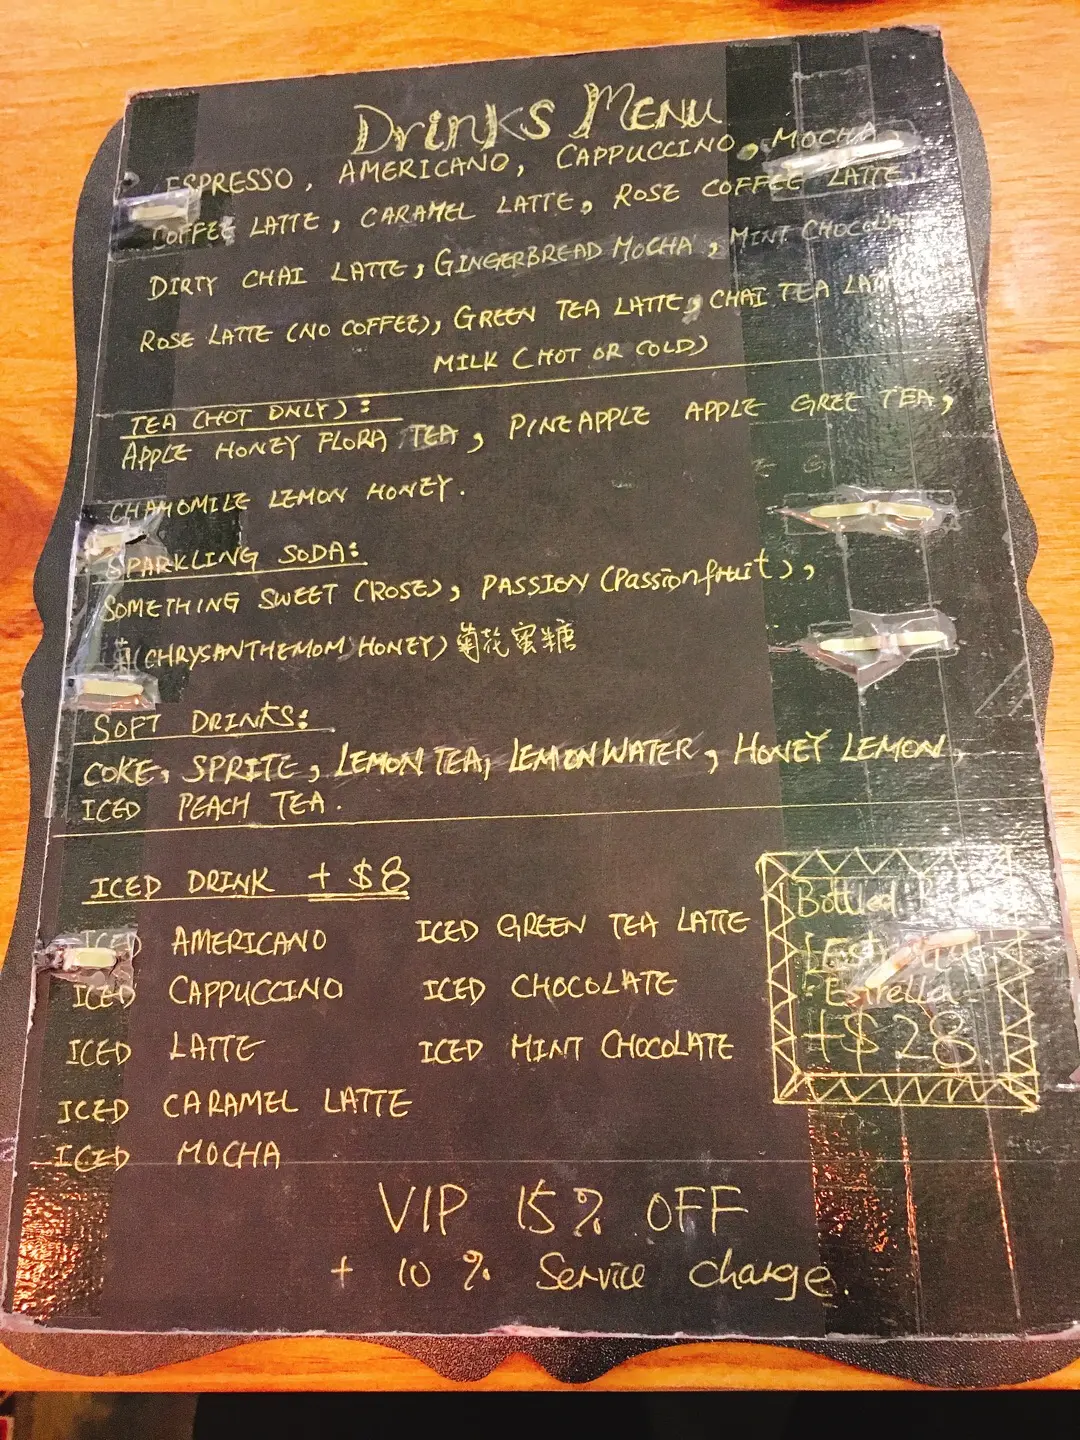 Drinks Menu
ESPRESSO, AMERICANO, CAPPUCCINO, MOCHA
COFFEE LATTE, CARAMEL LATTE, ROSE COFFEE LATTE,
DIRTY CHAI LATTE, GINGERBREAD MOCHA, MINT
ROSE LATTE (NO COFFEE), GREEN TEA LATTE, CHAI TEA
MILK (HOT OR COLD)
TEA (HOT ONLY):
APPLE HONEY FLORA TEA, PINEAPPLE APPLE GREE TEA,
CHAMOMILE LEMON HONEY.
SPARKLING SODA:
SOMETHING SWEET (ROSE), PASSION (Passionfruit),
菊(CHRYSANTHEMOM HONEY) 菊花蜜糖
SOFT DRINKS:
COKE, SPRITE, LEMON TEA, LEMON WATER, HONEY LEMON,
ICED PEACH TEA.
ICED DRINK + $8
ICED AMERICANO
ICED CAPPUCCINO
ICED LATTE
ICED CARAMEL LATTE
ICED MOCHA
ICED GREEN TEA LATTE
ICED CHOCOLATE
ICED MINT CHOCOLATE
Bottled
Estrella
+$28
VIP 15% OFF
+ 10% Service charge.